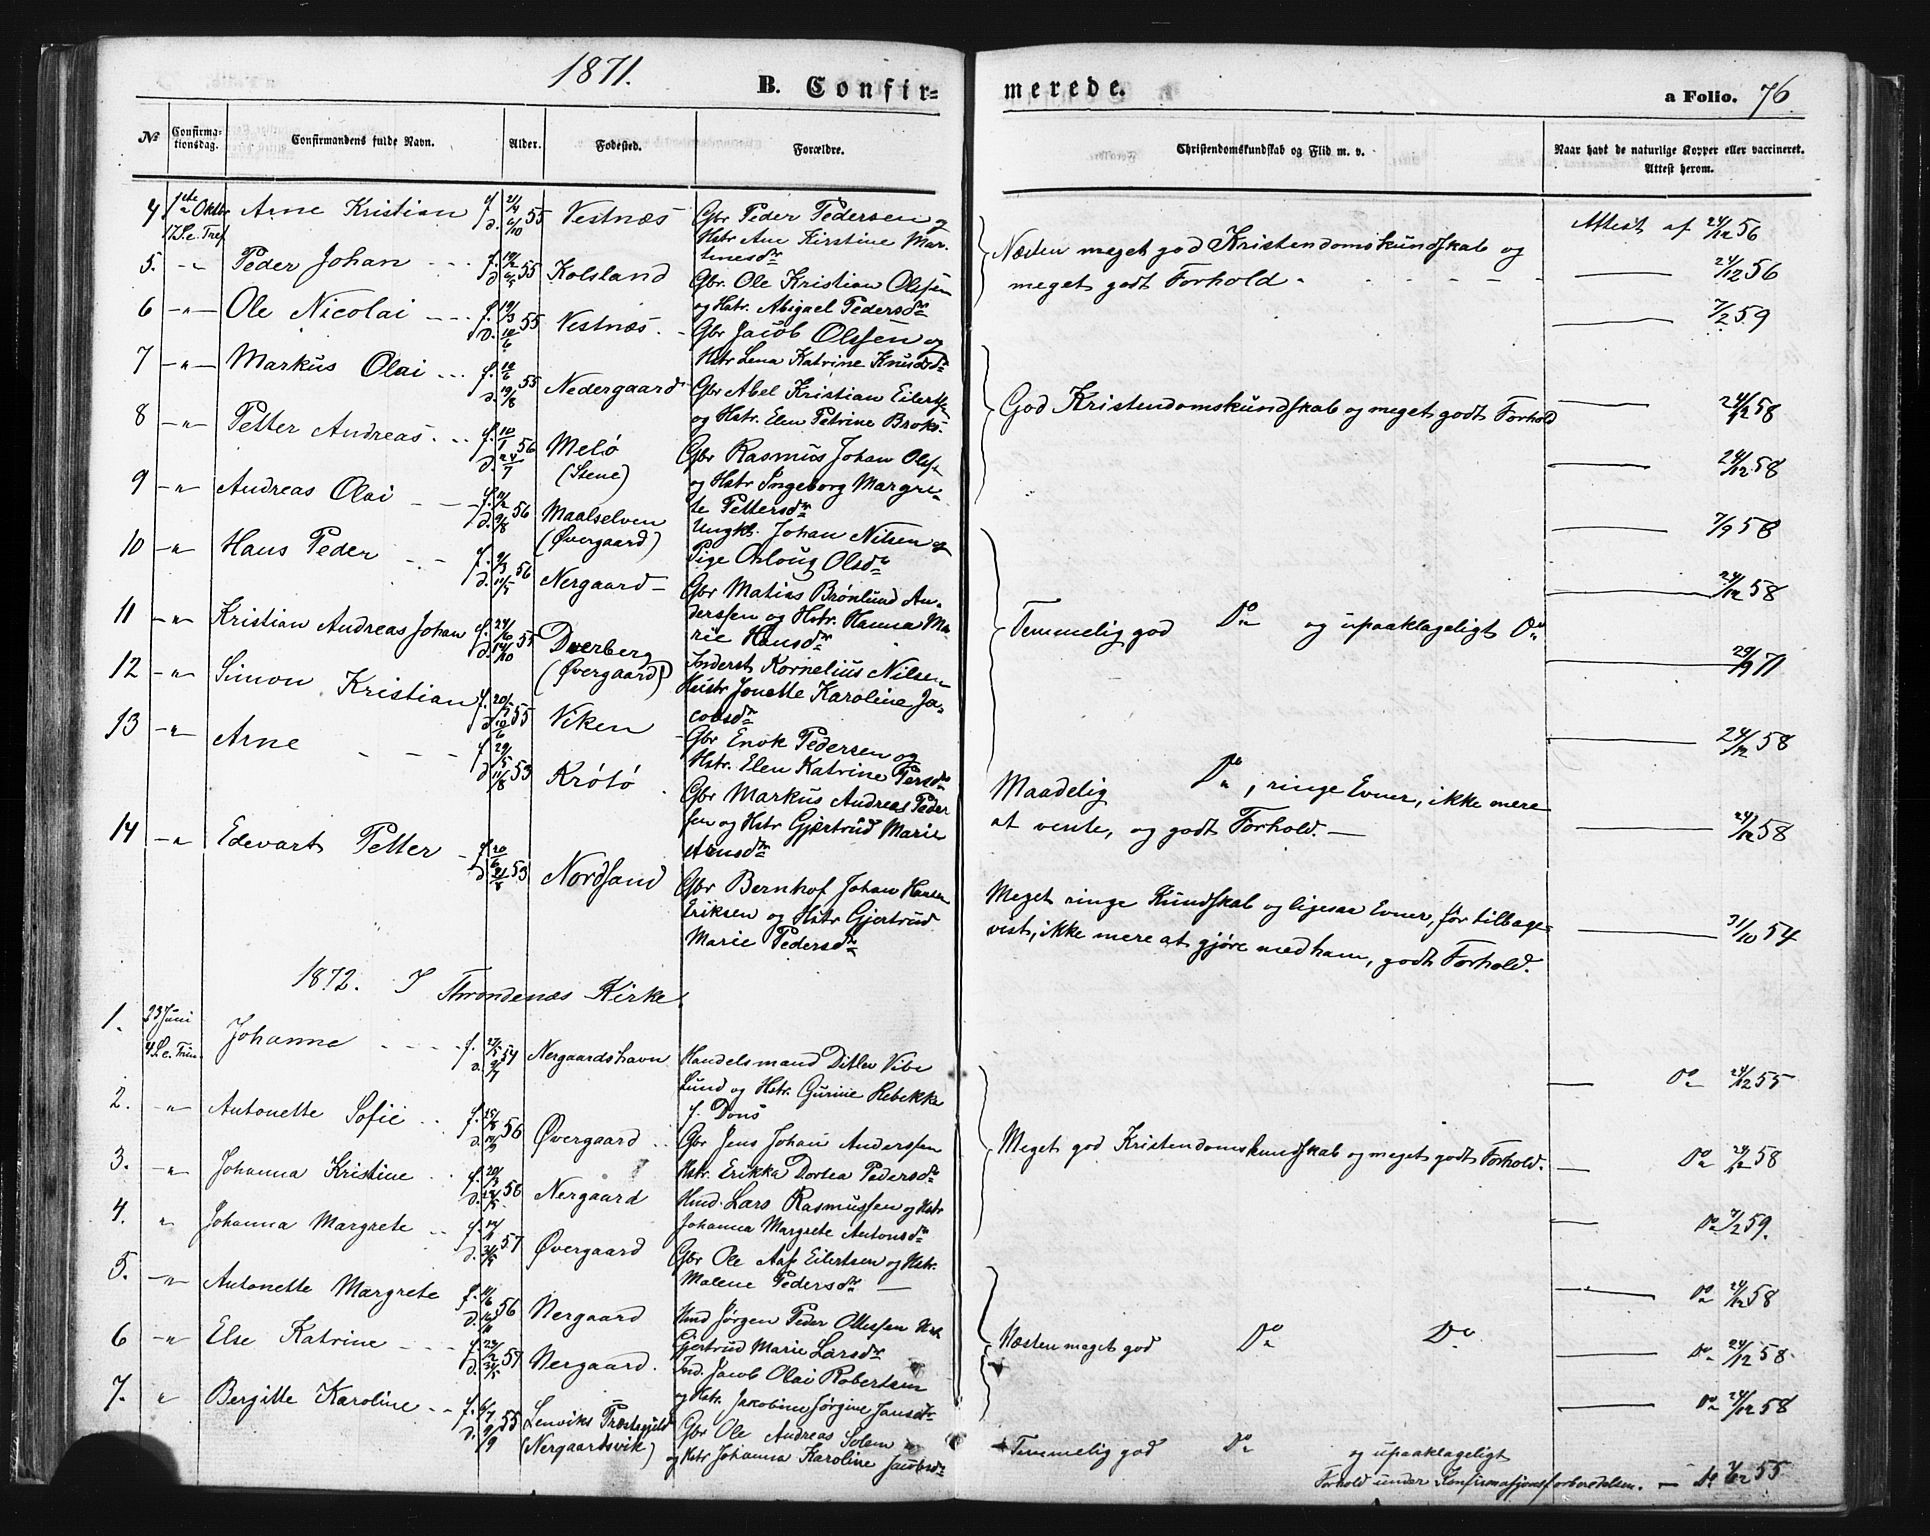 1871.
B. Confir-
merede.
a Folio. 76.
№
Confirmationsdag.
Confirmandens fulde Navn.
Alder.
Fødested.
Forældre.
Christendomskundskab og Flid m. v.
Naar havt de naturlige Kopper eller vaccineret. Attest herom.
4 1ste Oktbr Arne Kristian f. d. 55 Vestnæs Gbr Peder Pedersen og
17 S. e. Tref Hstr Ane Kirstine Mar-
tinesdtr
5. -"- Peder Johan f. d. 55 Kolsland Gbr. Ole Kristian Olssen
og Hstr. Abigael Pedersdtr
6 -"- Ole Nicolai f. 19/3 d. 10/6 55 Vestnæs Gbr Jacob Olssen og
Hstr Lena Katrine Knudsdtr
7 -"- Markus Olai f. d. 19/8 55 Nedergaard Gbr Abel Kristian Eilertssen
og Hstr. Elen Petrine Broks.
8 -"- Petter Andreas f. 10/1 d. 56 Melø Gbr Rasmus Johan Olss.
(Stene) og Hstr Ingeborg Margre-
te Pettersdtr
9 -"- Andreas Olai f. d. 9/8 56 Maalselven Ungkl. Johan Nilsen og
(Øvergaard) Pige Oloug Olsdtr
10 -"- Hans Peder f. 9/3 d. 11/5 56 Nergaard Gbr Matias Brønlund An-
derssen og Hstr. Hanna Ma-
rie Hansdtr
11 -"- Kristian Andreas Johan f. d. 14/10 55 Dverberg Inderst Kornelius Nilsen
(Øvergaard) Hustr Jonette Karoline Ja-
cobsdtr
12 -"- Simon Kristian f. d. 10/6 55 Viken Gbr Enok Pedersen og
Hstr. Elen Katrine Persdtr
13 -"- Arne f. 29/5 d. 11/8 53 Krøtø Gbr Markus Andreas Peder
sen og Hstr Gjertrud Marie
Arnsdtr
14 -"- Edevart Petter f. 20/6 d. 53 Nordsand Gbr Bernhof Johan Hansen
Eriksen og Hstr Gjertrud
Marie Pedersdtr
1872. I Throndenæs Kirke.
1. 23 Juni Johanne f. d. 54 Nergaardshavn Handelsmand Ditlev Vibe
4 S. e. Trin. Lund og Hstr. Gurine Rebekke
f. Dons
2. " Antonette Sofie f. d. 56 Øvergaard Gbr Jens Johan Anderssen
Hstr. Erikka Dortea Pedersdtr
3. -"- Johanna Kristine f. d. 56 Nergaard Hmd. Lars Rasmussen og Hstr
Johanna Margrete Antonsdtr
4. " Johanna Margrete f. d. 57 Øvergaard Gbr Ole Aas Eilertsen og Hstr.
Malene Pedersdtr
5. -"- Antonette Margrete f. d. 56 Nergaard Hmd Jørgen Peder Ottessen Hst
Gjertrud Marie Larsdtr
6 -"- Else Katrine f. d. 57 Nergaard. Ind. Jacob Olai Robertsen
og Hstr. Jakobine Jørgine Jansdtr
7. " Bergitte Karoline f. 6/7 d. 9/9 55 Lenviks Præstegjeld Gbr Ole Andreas Solem
(Nergaardsvik) og Hstr Johanna Karoline Jacobsdtr
Næsten meget god Kristendomskundskab og
meget godt Forhold.
God Kristendomskundskab og meget godt Forhold
Temmelig god Do og upaaklageligt Do
Maadelig Do, ringe Evner, ikke mere
at vente, og godt Forhold.
Meget ringe Kundskab og ligesaa Evner, før tilbage-
vist, ikke mere at gjøre med ham, godt Forhold.
Meget god Kristendomskundskab og meget godt Forhold.
Næsten meget god Do Do
Temmelig god Do og upaaklageligt
Forhold under Konfirmasjonsforberedelsen.
Attest af 24/12 56
24/12 56
7/2 59
24/12 58
24/12 58
7/9 58
24/12 58
29/9 71
24/12 58
24/12 58
31/10 54
Do 24/12 55
Do 24/12 58
Do 7/2 59.
Do 24/12 58
Do 24/12 58
Do 24/12 58
55